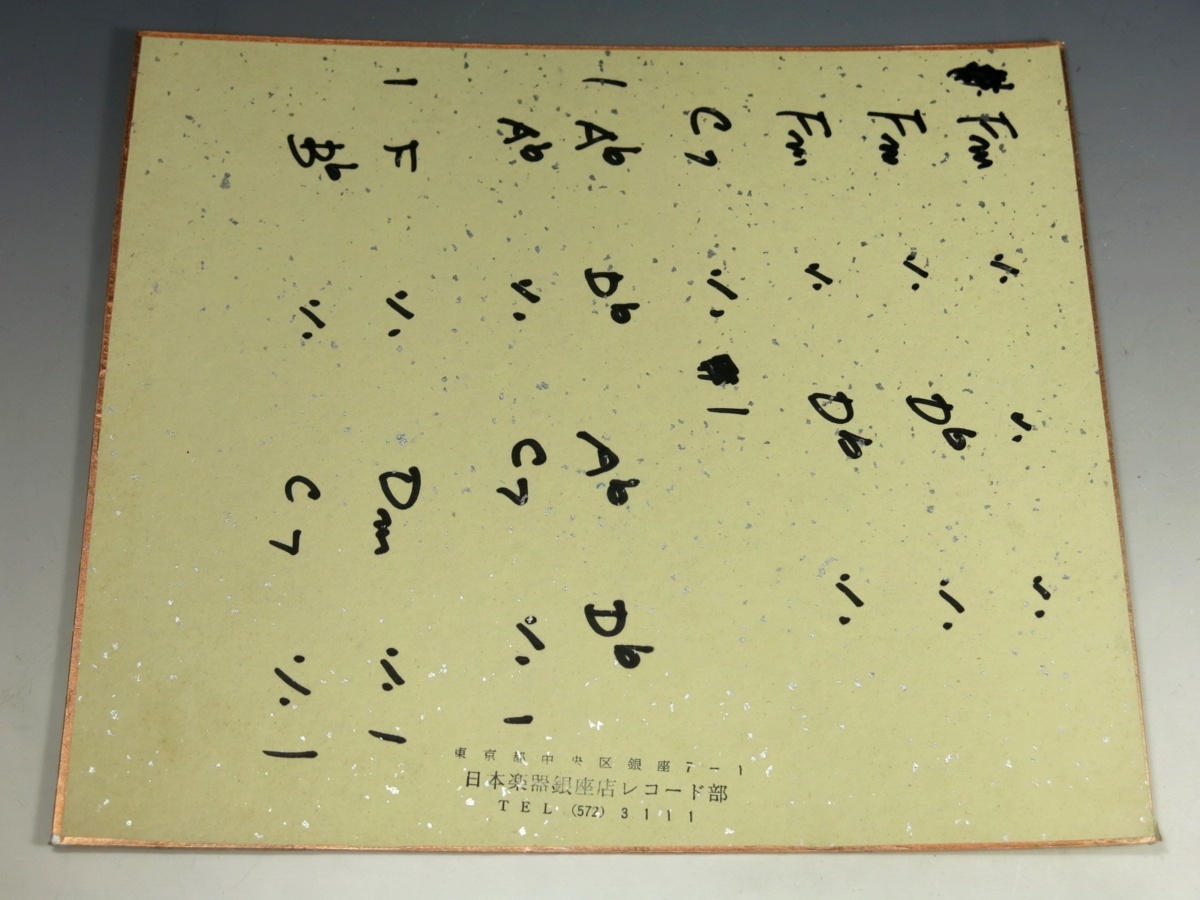 Fm % % %
Fm % D♭ %
Fm % D♭ %
C7 % |
| A♭ D♭ A♭ D♭
A♭ % C7 % |
| F % Dm % |
B♭ % C7 % |
東京都中央区銀座7-1
日本楽器銀座店レコード部
TEL (572) 3111